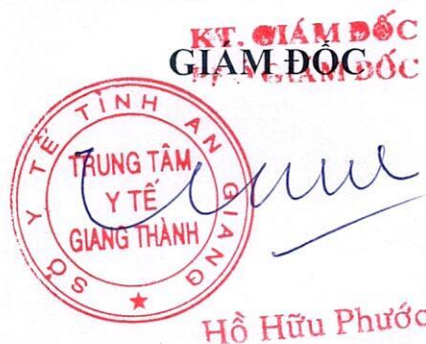 KT. GIÁM ĐỐC
GIÁM ĐỐC
GIÁM ĐỐC
SỞ Y TẾ TỈNH AN GIANG
TRUNG TÂM
Y TẾ
GIANG THÀNH
Hồ Hữu Phước